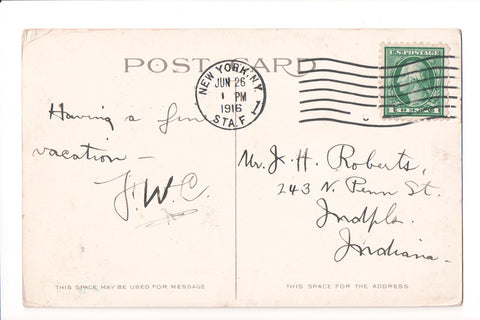 POST CARD
NEW YORK, N.Y.
JUN 26
1 PM
1916
STA. F
1
U.S. POSTAGE
Having a fine
vacation —
J.W.C.
Mr. J. H. Roberts,
243 N. Penn St.
Indpls.
Indiana.
THIS SPACE MAY BE USED FOR MESSAGE
THIS SPACE IS FOR THE ADDRESS